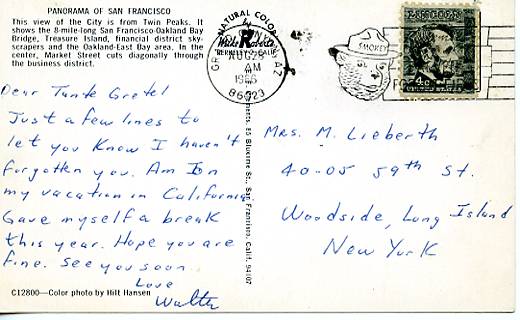 PANORAMA OF SAN FRANCISCO
This view of the City is from Twin Peaks. It
shows the 8-mile-long San Francisco-Oakland Bay
Bridge, Treasure Island, financial district sky-
scrapers and the Oakland-East Bay area. In the
center, Market Street cuts diagonally through
the business district.
Dear Tante Gretel
Just a few lines to
let you Know I haven't
forgotten you. Am In
my vacation in California
Gave myself a break
this year. Hope you are
fine. See you soon
Love
Walter
C12800—Color photo by Hilt Hansen
NATURAL COLOR
by
Mike Roberts
BERKELEY
AUG 28
AM
1966
86023
85 Bluxome St., San Francisco, Calif. 94107
SMOKEY
4¢
UNITED STATES
Mrs. M. Lieberth
40-05 59th St.
Woodside, Long Island
New York